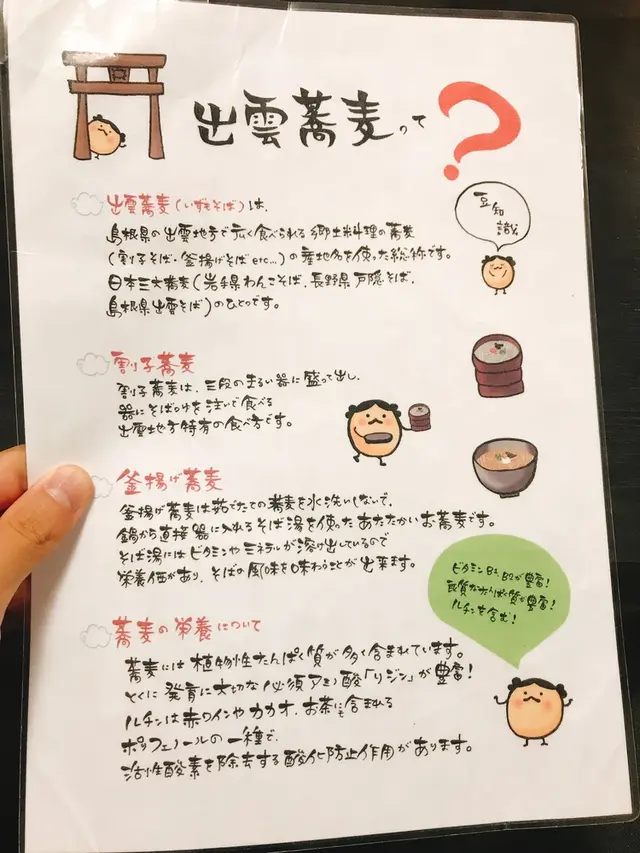 出雲蕎麦って?
豆知識
出雲蕎麦(いずもそば)は、
島根県の出雲地方で広く食べられる郷土料理の蕎麦
(割子そば・釜揚げそばetc...)の産地名を使った総称です。
日本三大蕎麦(岩手県わんこそば、長野県戸隠そば、
島根県出雲そば)のひとつです。
割子蕎麦
割子蕎麦は、三段のまるい器に盛って出し、
器にそばつゆを注いで食べる
出雲地方特有の食べ方です。
釜揚げ蕎麦
釜揚げ蕎麦は茹でたての蕎麦を水洗いしないで、
鍋から直接器に入れるそば湯を使ったあたたかいお蕎麦です。
そば湯にはビタミンやミネラルが溶け出しているので
栄養価があり、そばの風味を味わうことが出来ます。
ビタミンB1、B2が豊富!
良質なたんぱく質が豊富!
ルチンを含む!
蕎麦の栄養について
蕎麦には植物性たんぱく質が多く含まれています。
とくに発育に大切な必須アミノ酸「リジン」が豊富!
ルチンは赤ワインやカカオ、お茶にも含まれる
ポリフェノールの一種で、
活性酸素を除去する酸化防止作用があります。